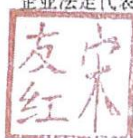 企业法定代表
宋
友红